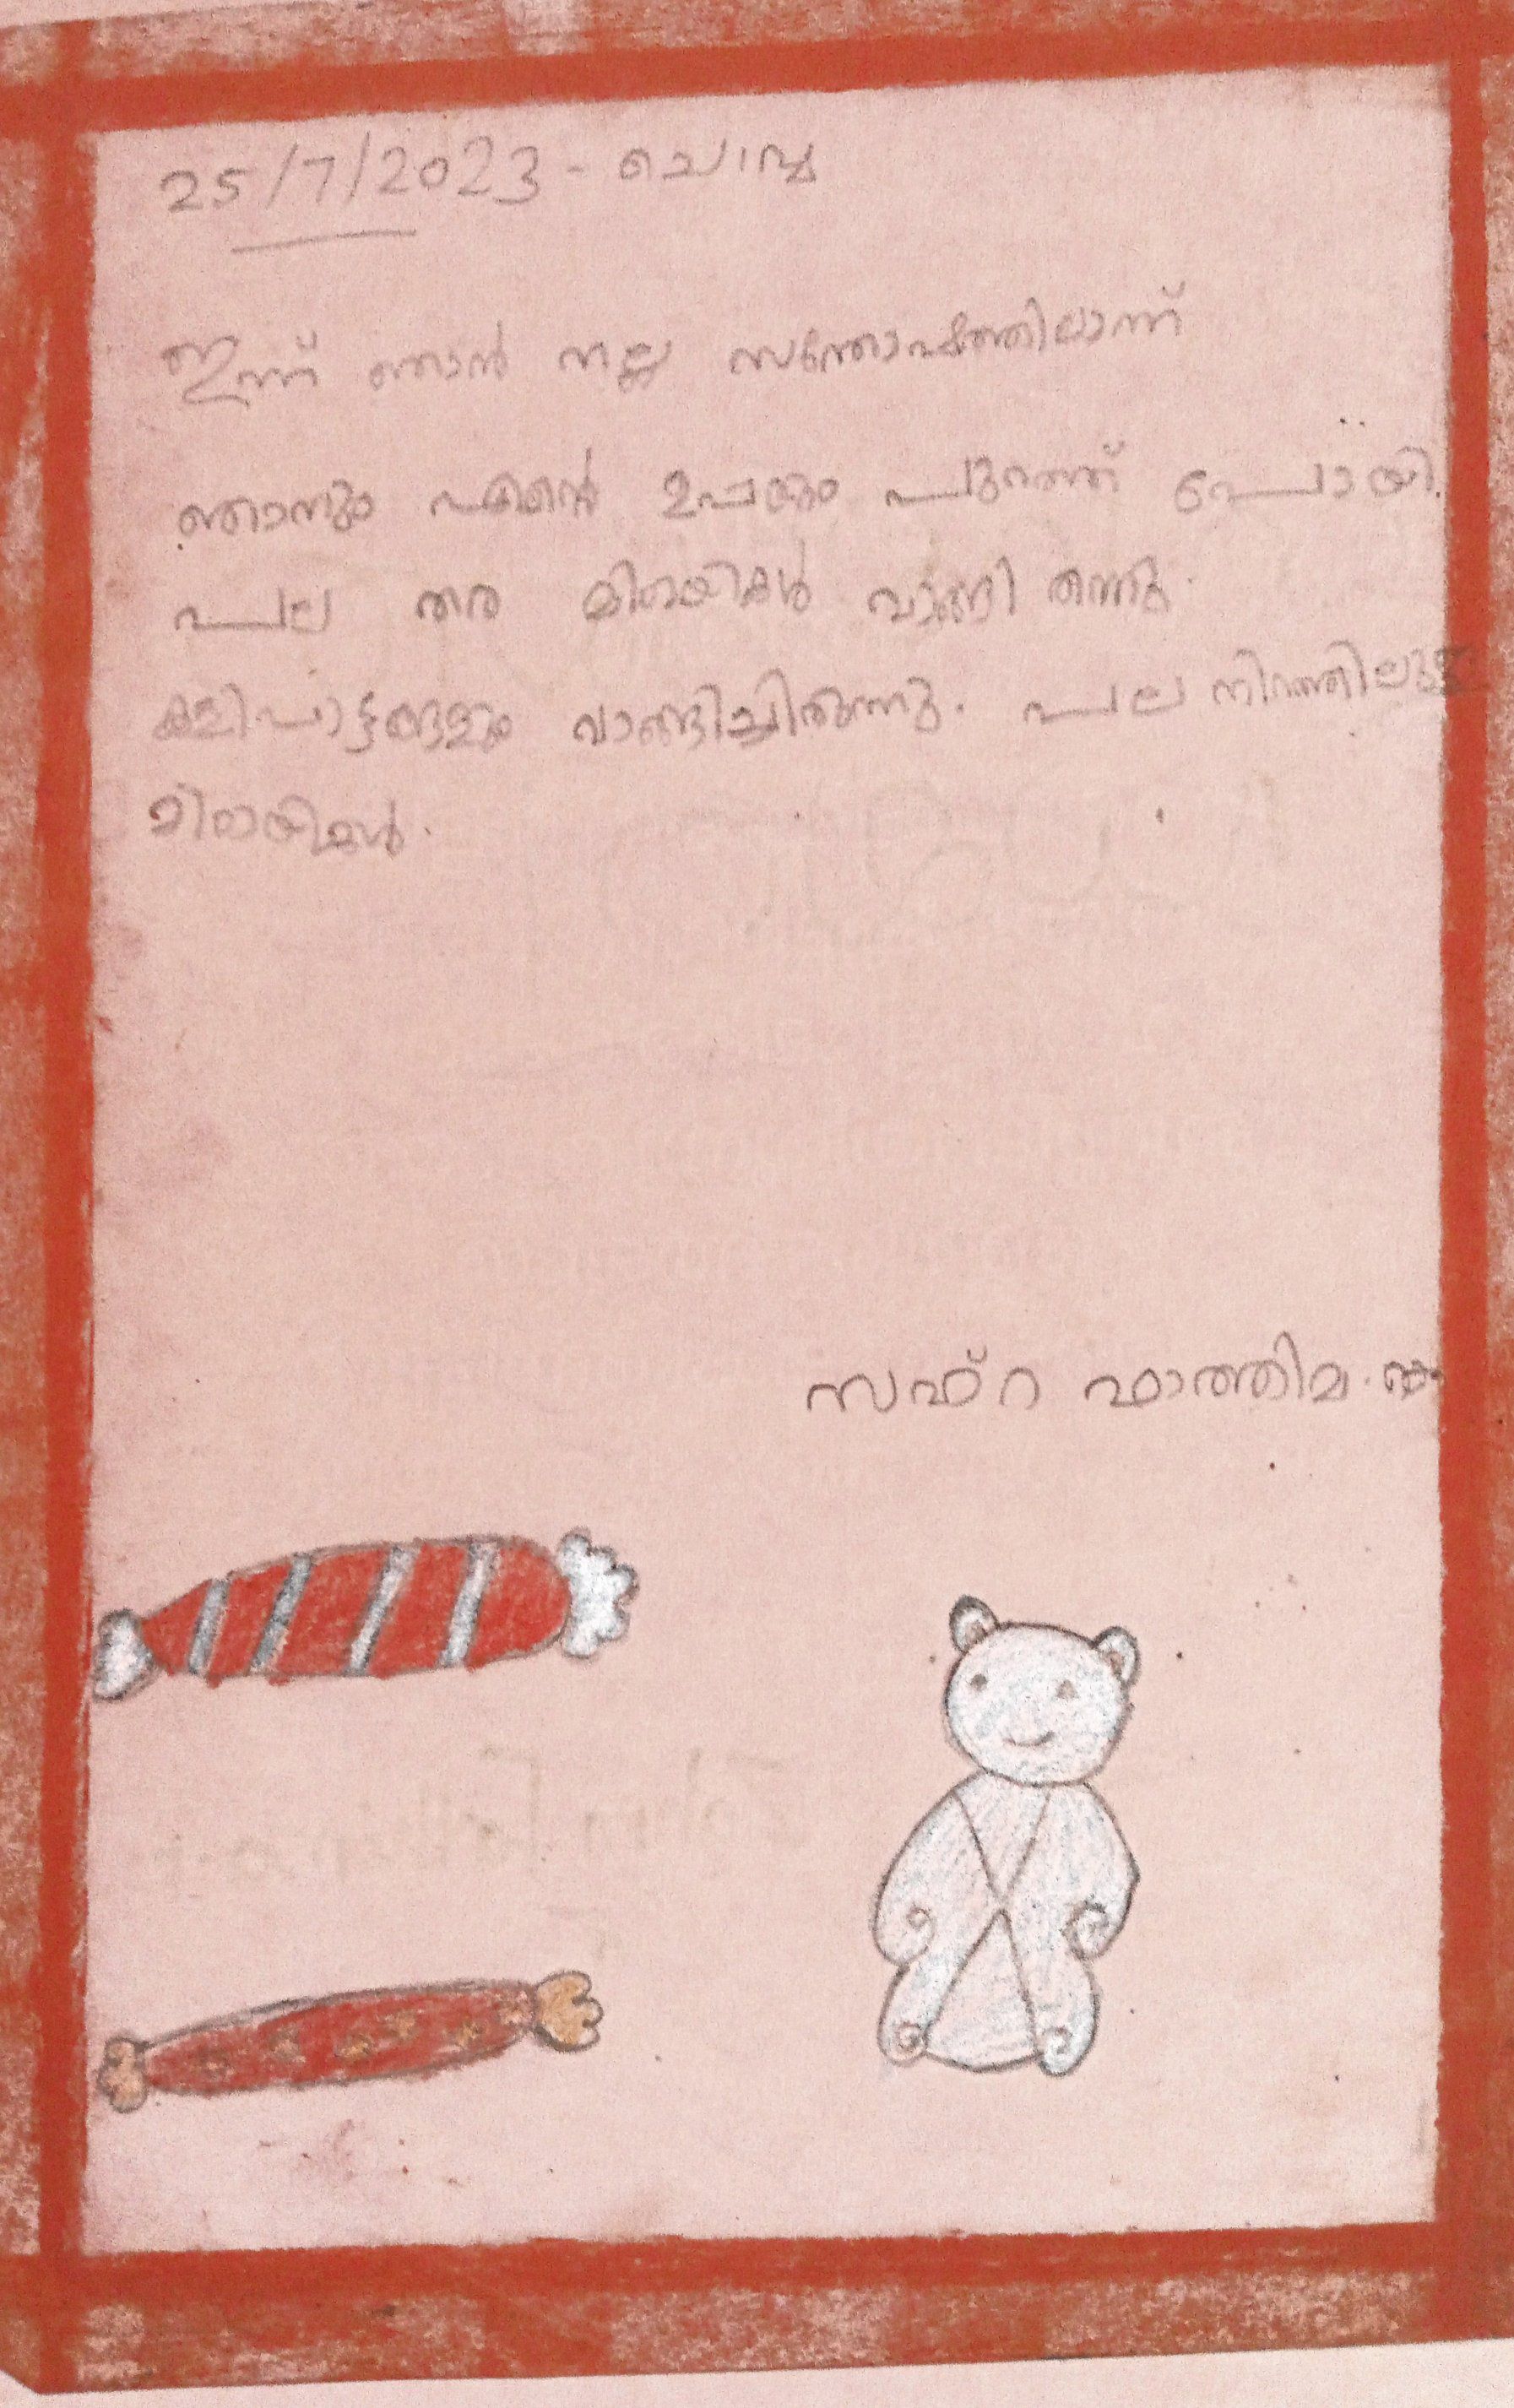 25/7/2023 - ചൊവ്വ
ഇന്ന് ഞാൻ നല്ല സന്തോഷത്തിലാന്ന്
ഞാനും എന്റെ ഉപ്പയും പുറത്ത് പോയി.
പല തര മിഠായികൾ വാങ്ങി തന്നു.
കളിപാട്ടങ്ങളും വാങ്ങിച്ചിരുന്നു. പല നിറത്തിലുള്ള
മിഠായികൾ.
സഹ്റ ഫാത്തിമ.